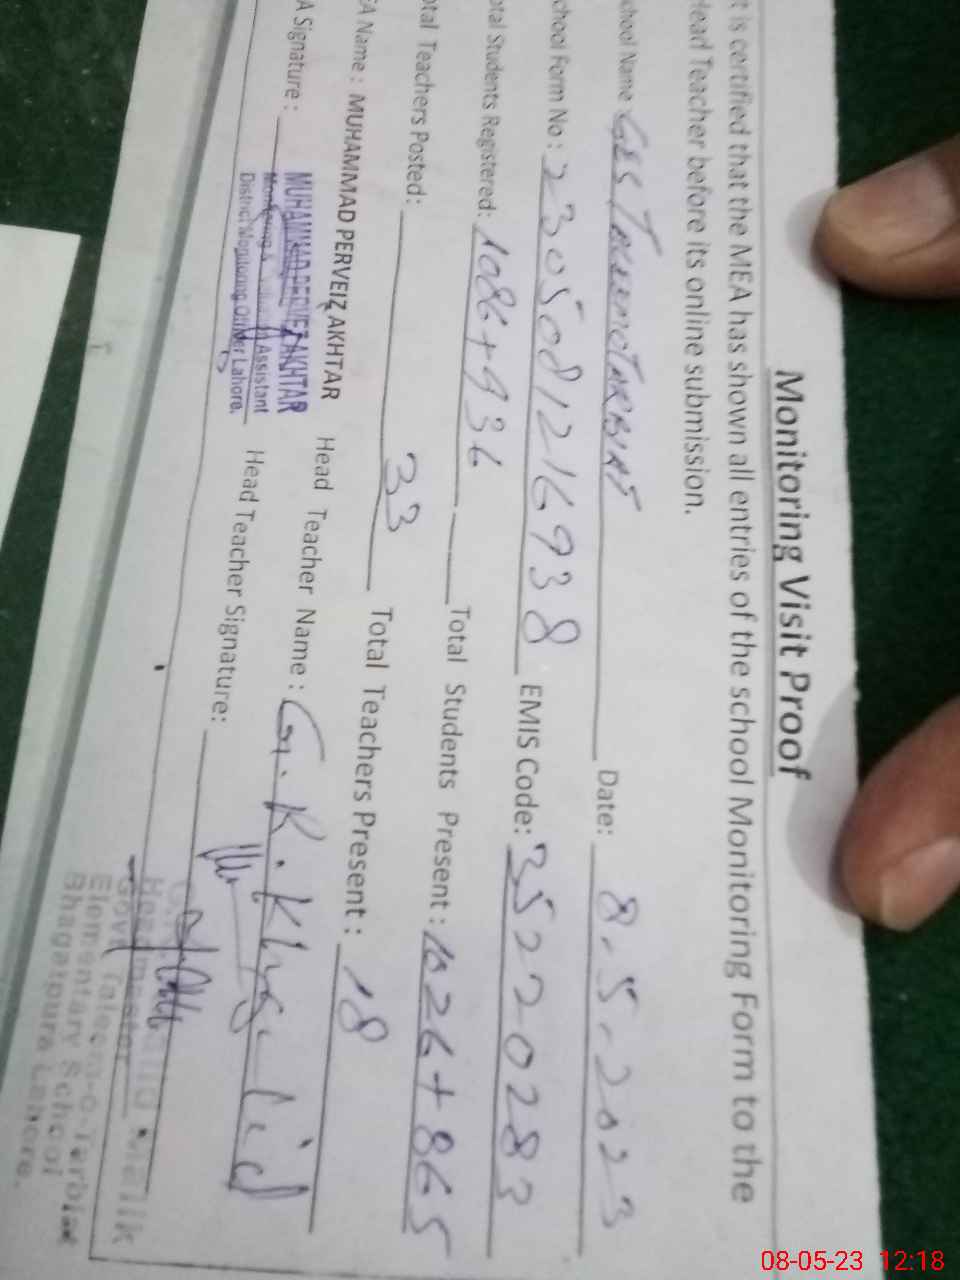 Monitoring Visit Proof
t is certified that the MEA has shown all entries of the school Monitoring Form to the
Head Teacher before its online submission.
chool Name GES Taleemotarbiat Date: 8.5.2023
chool Form No : 2305081216938 EMIS Code: 35220283
otal Students Registered: 1086+936 Total Students Present : 1026+865
otal Teachers Posted: 33 Total Teachers Present : 18
EA Name : MUHAMMAD PERVEIZ AKHTAR Head Teacher Name : G.K. Khalid
A Signature : Head Teacher Signature:
MUHAMMAD PERVEZ AKHTAR
Monitoring & Assistant
District Monitoring Officer Lahore.
Malik
Headmaster
Govt. Taleem-o-Tarbiat
Elementary School
Bhagatpura Lahore.
08-05-23 12:18